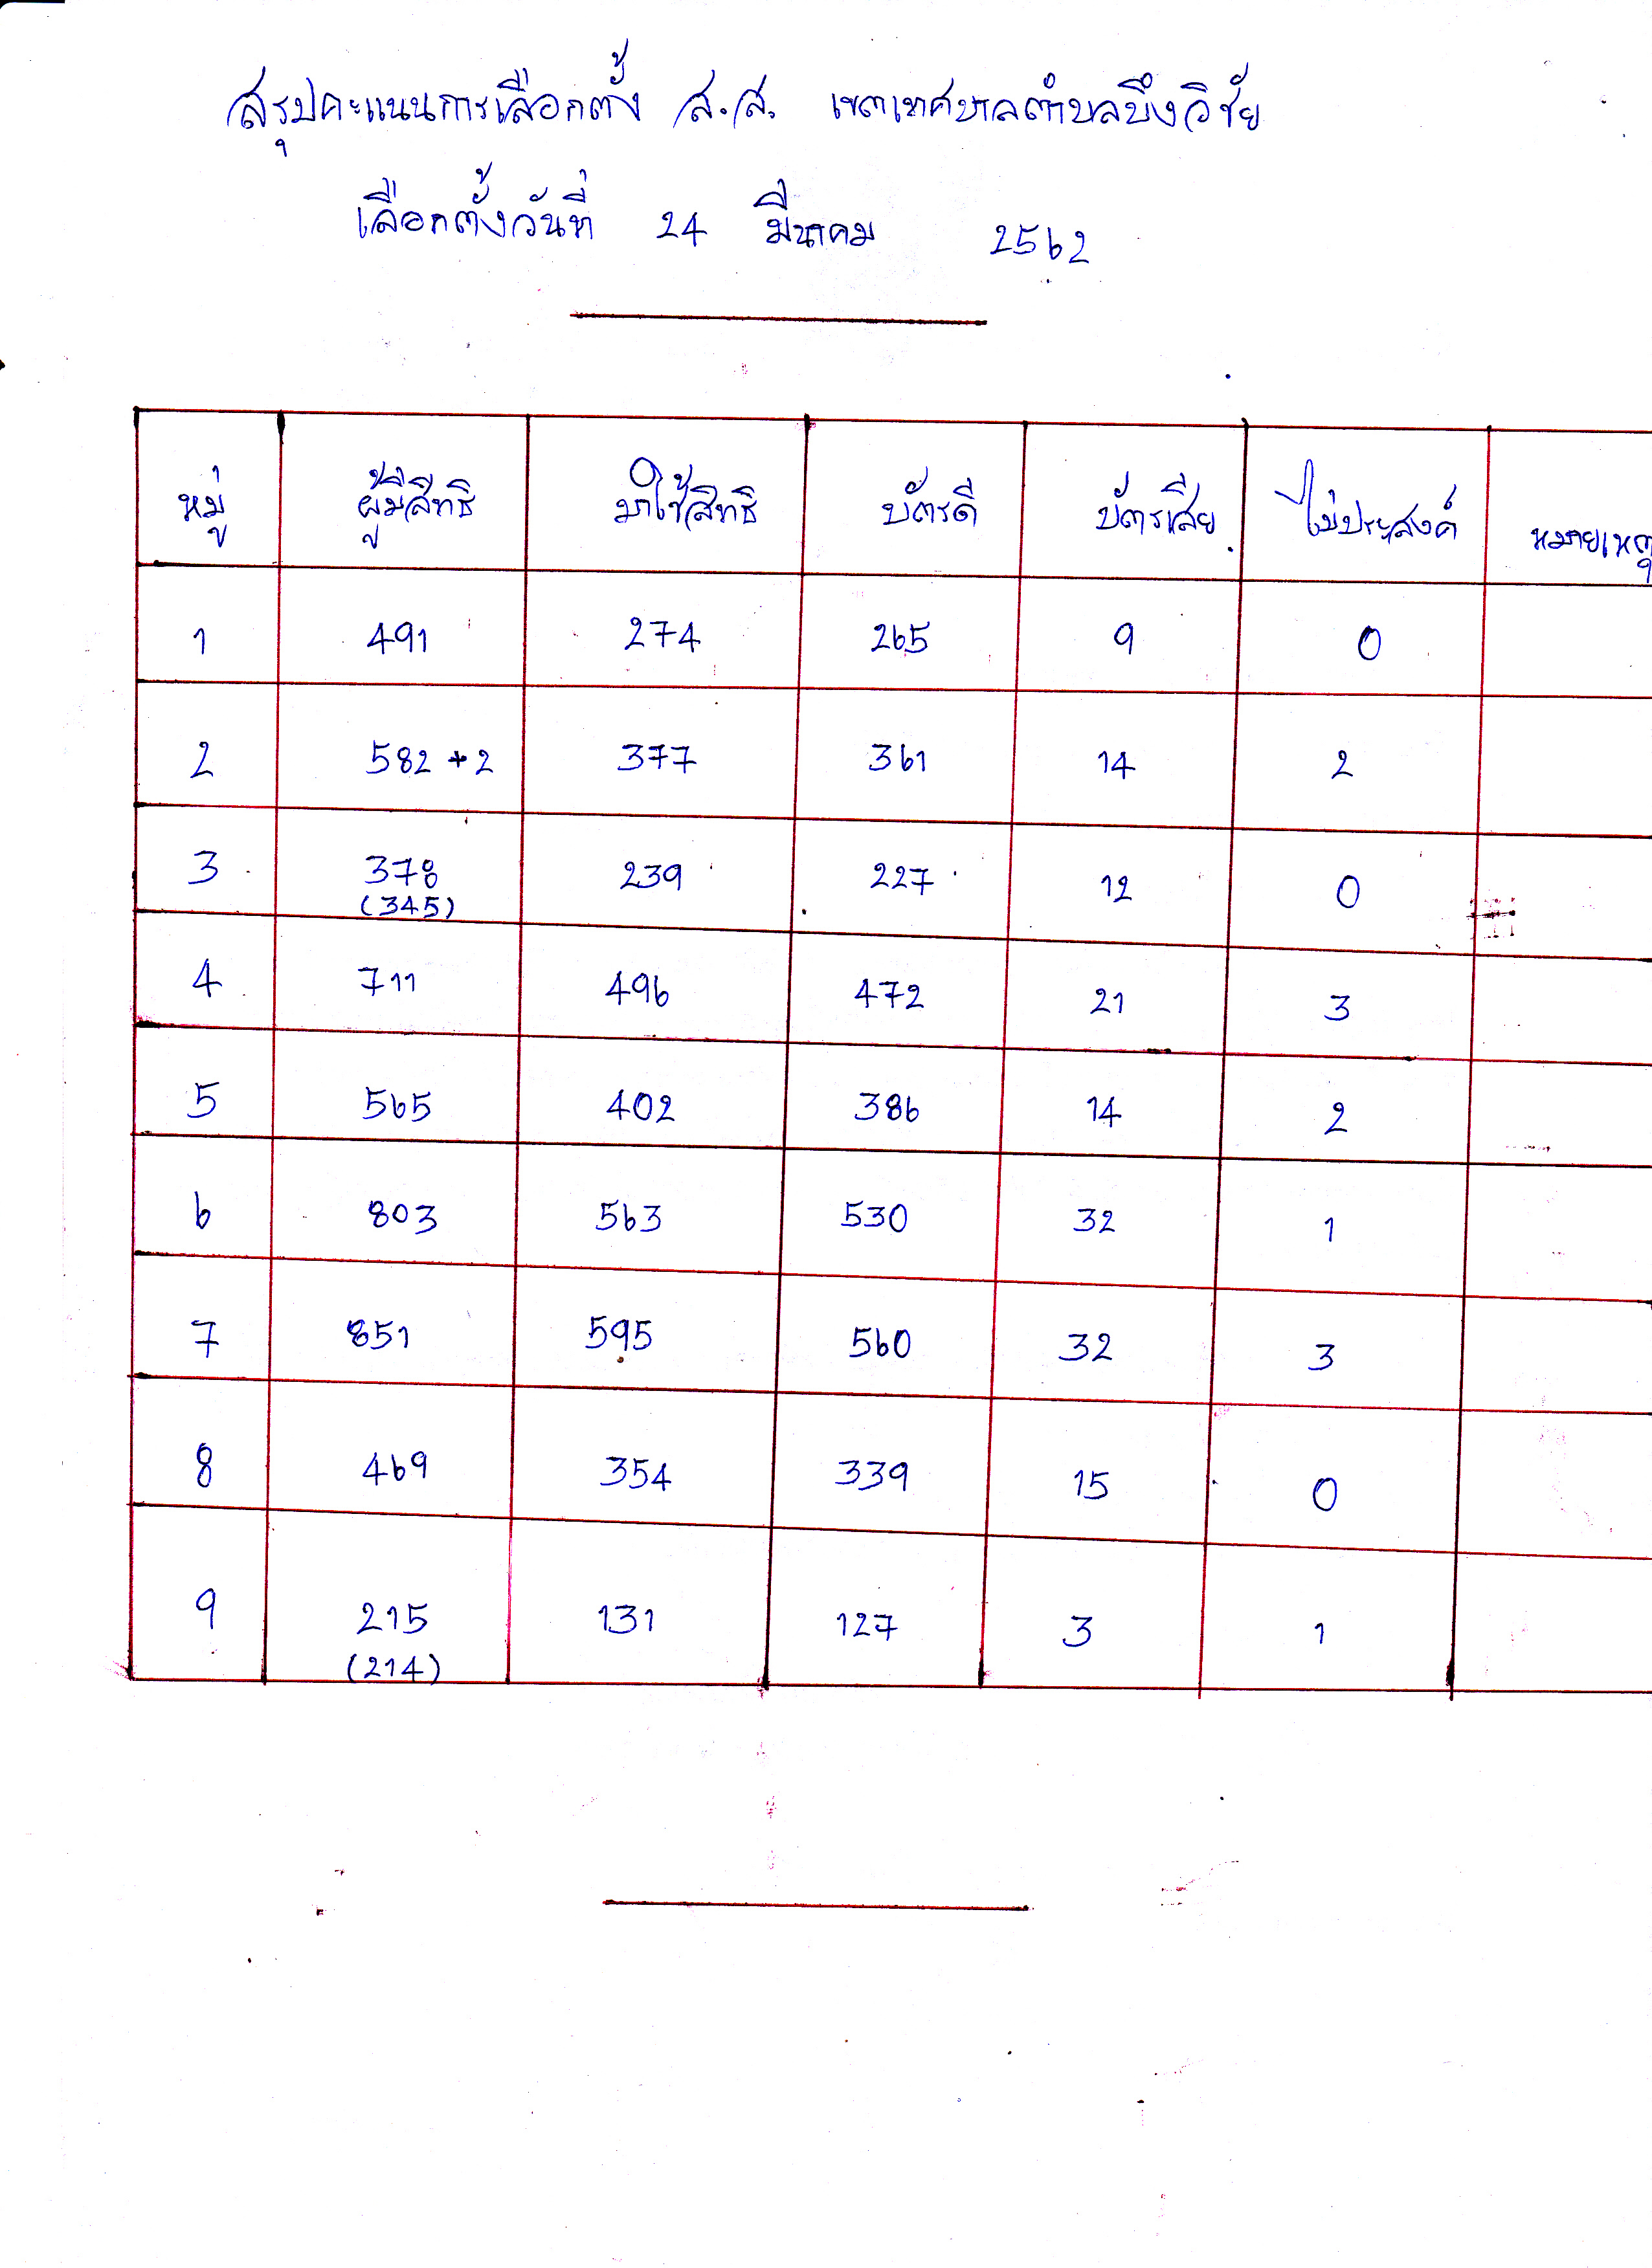 สรุปคะแนนการเลือกตั้ง ส.ส. เขตเทศบาลตำบลบึงวิชัย
เลือกตั้งวันที่ 24 มีนาคม 2562
หมู่ ผู้มีสิทธิ มาใช้สิทธิ บัตรดี บัตรเสีย ไม่ประสงค์ หมายเหตุ
1 491 274 265 9 0
2 582 +2 377 361 14 2
3 378 239 227 12 0
(345)
4 711 496 472 21 3
5 565 402 386 14 2
6 803 563 530 32 1
7 851 595 560 32 3
8 469 354 339 15 0
9 215 131 127 3 1
(214)